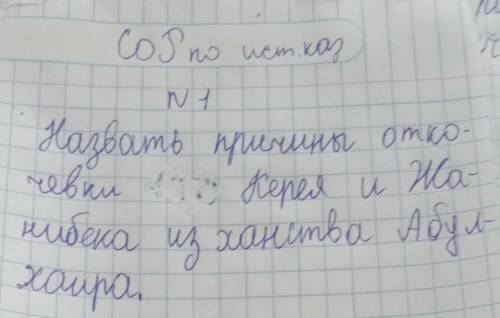 СоР по ист.каз
N 1
Назвать причины отко-
чевки Керея и Жа-
нибека из ханства Абул-
хаира.